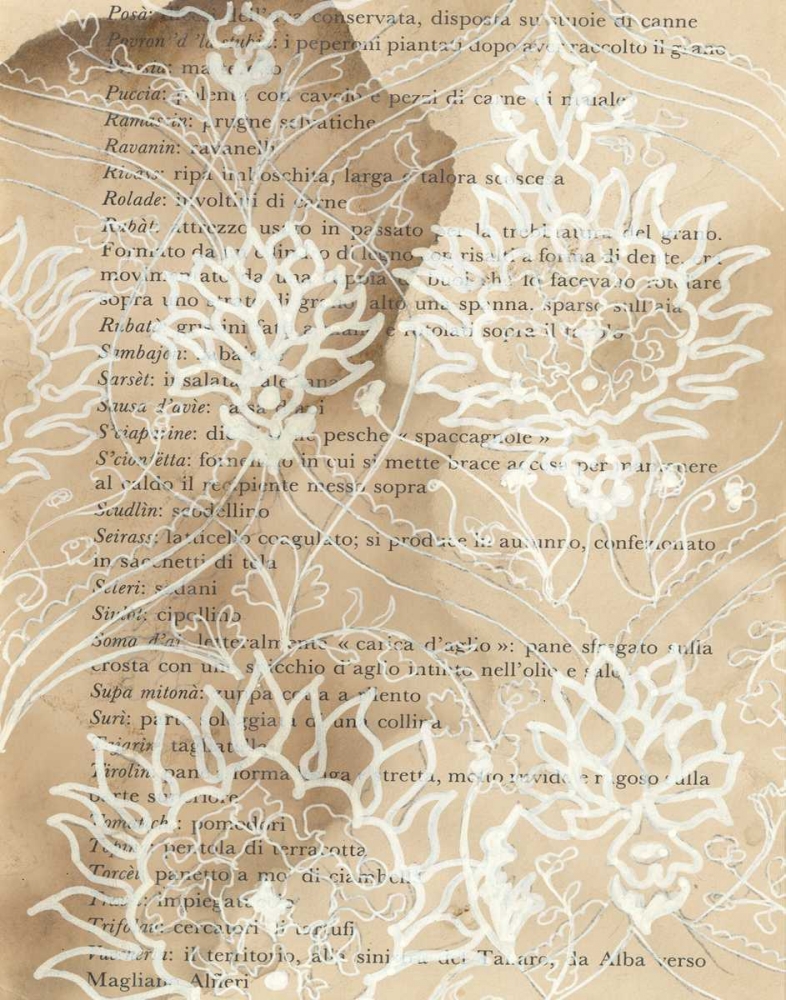 Posà: dell'uva conservata, disposta su stuoie di canne
Povron d'la stubia: i peperoni piantati dopo aver raccolto il grano
Puccia: polenta con cavolo e pezzi di carne di maiale
Ramassin: prugne selvatiche
Ravanin: ravanelli
ripa imboschita, larga e talora scoscesa
Rolade: involtini di carne
Rubàt: attrezzo usato in passato per la trebbiatura del grano.
Formato da un cilindro di legno con risalti a forma di dente. Era
movimentato da una coppia di buoi che lo facevano rotolare
sopra uno strato di grano alto una spanna, sparso sull'aia
Rubatà: grissini fatti a mano e rotolati sopra il tavolo
Sambajon: zabaione
Sarsèt: insalata valeriana
Sausa d'avie: salsa d'api
pesche « spaccagnole »
S'cionfëtta: fornello in cui si mette brace accesa per mantenere
al caldo il recipiente messo sopra
Scudlìn: scodellino
Seirass: latticello coagulato; si produce in autunno, confezionato
in sacchetti di tela
Seleri: sedani
cipollino
Soma d'aj: letteralmente « carica d'aglio »: pane sfregato sulla
crosta con uno spicchio d'aglio intinto nell'olio e sale
Supa mitonà: zuppa cotta a rilento
Surì: parte soleggiata di una collina
Tajarin: tagliatelle
Tirolin: pane forma lunga e stretta, molto ruvido e rugoso sulla
parte superiore
pomodori
pentola di terracotta
Torcèt: panetto a mo' di ciambella
Trifolau: cercatori di tartufi
il territorio, alla sinistra del Tanaro, da Alba verso
Magliano Alfieri